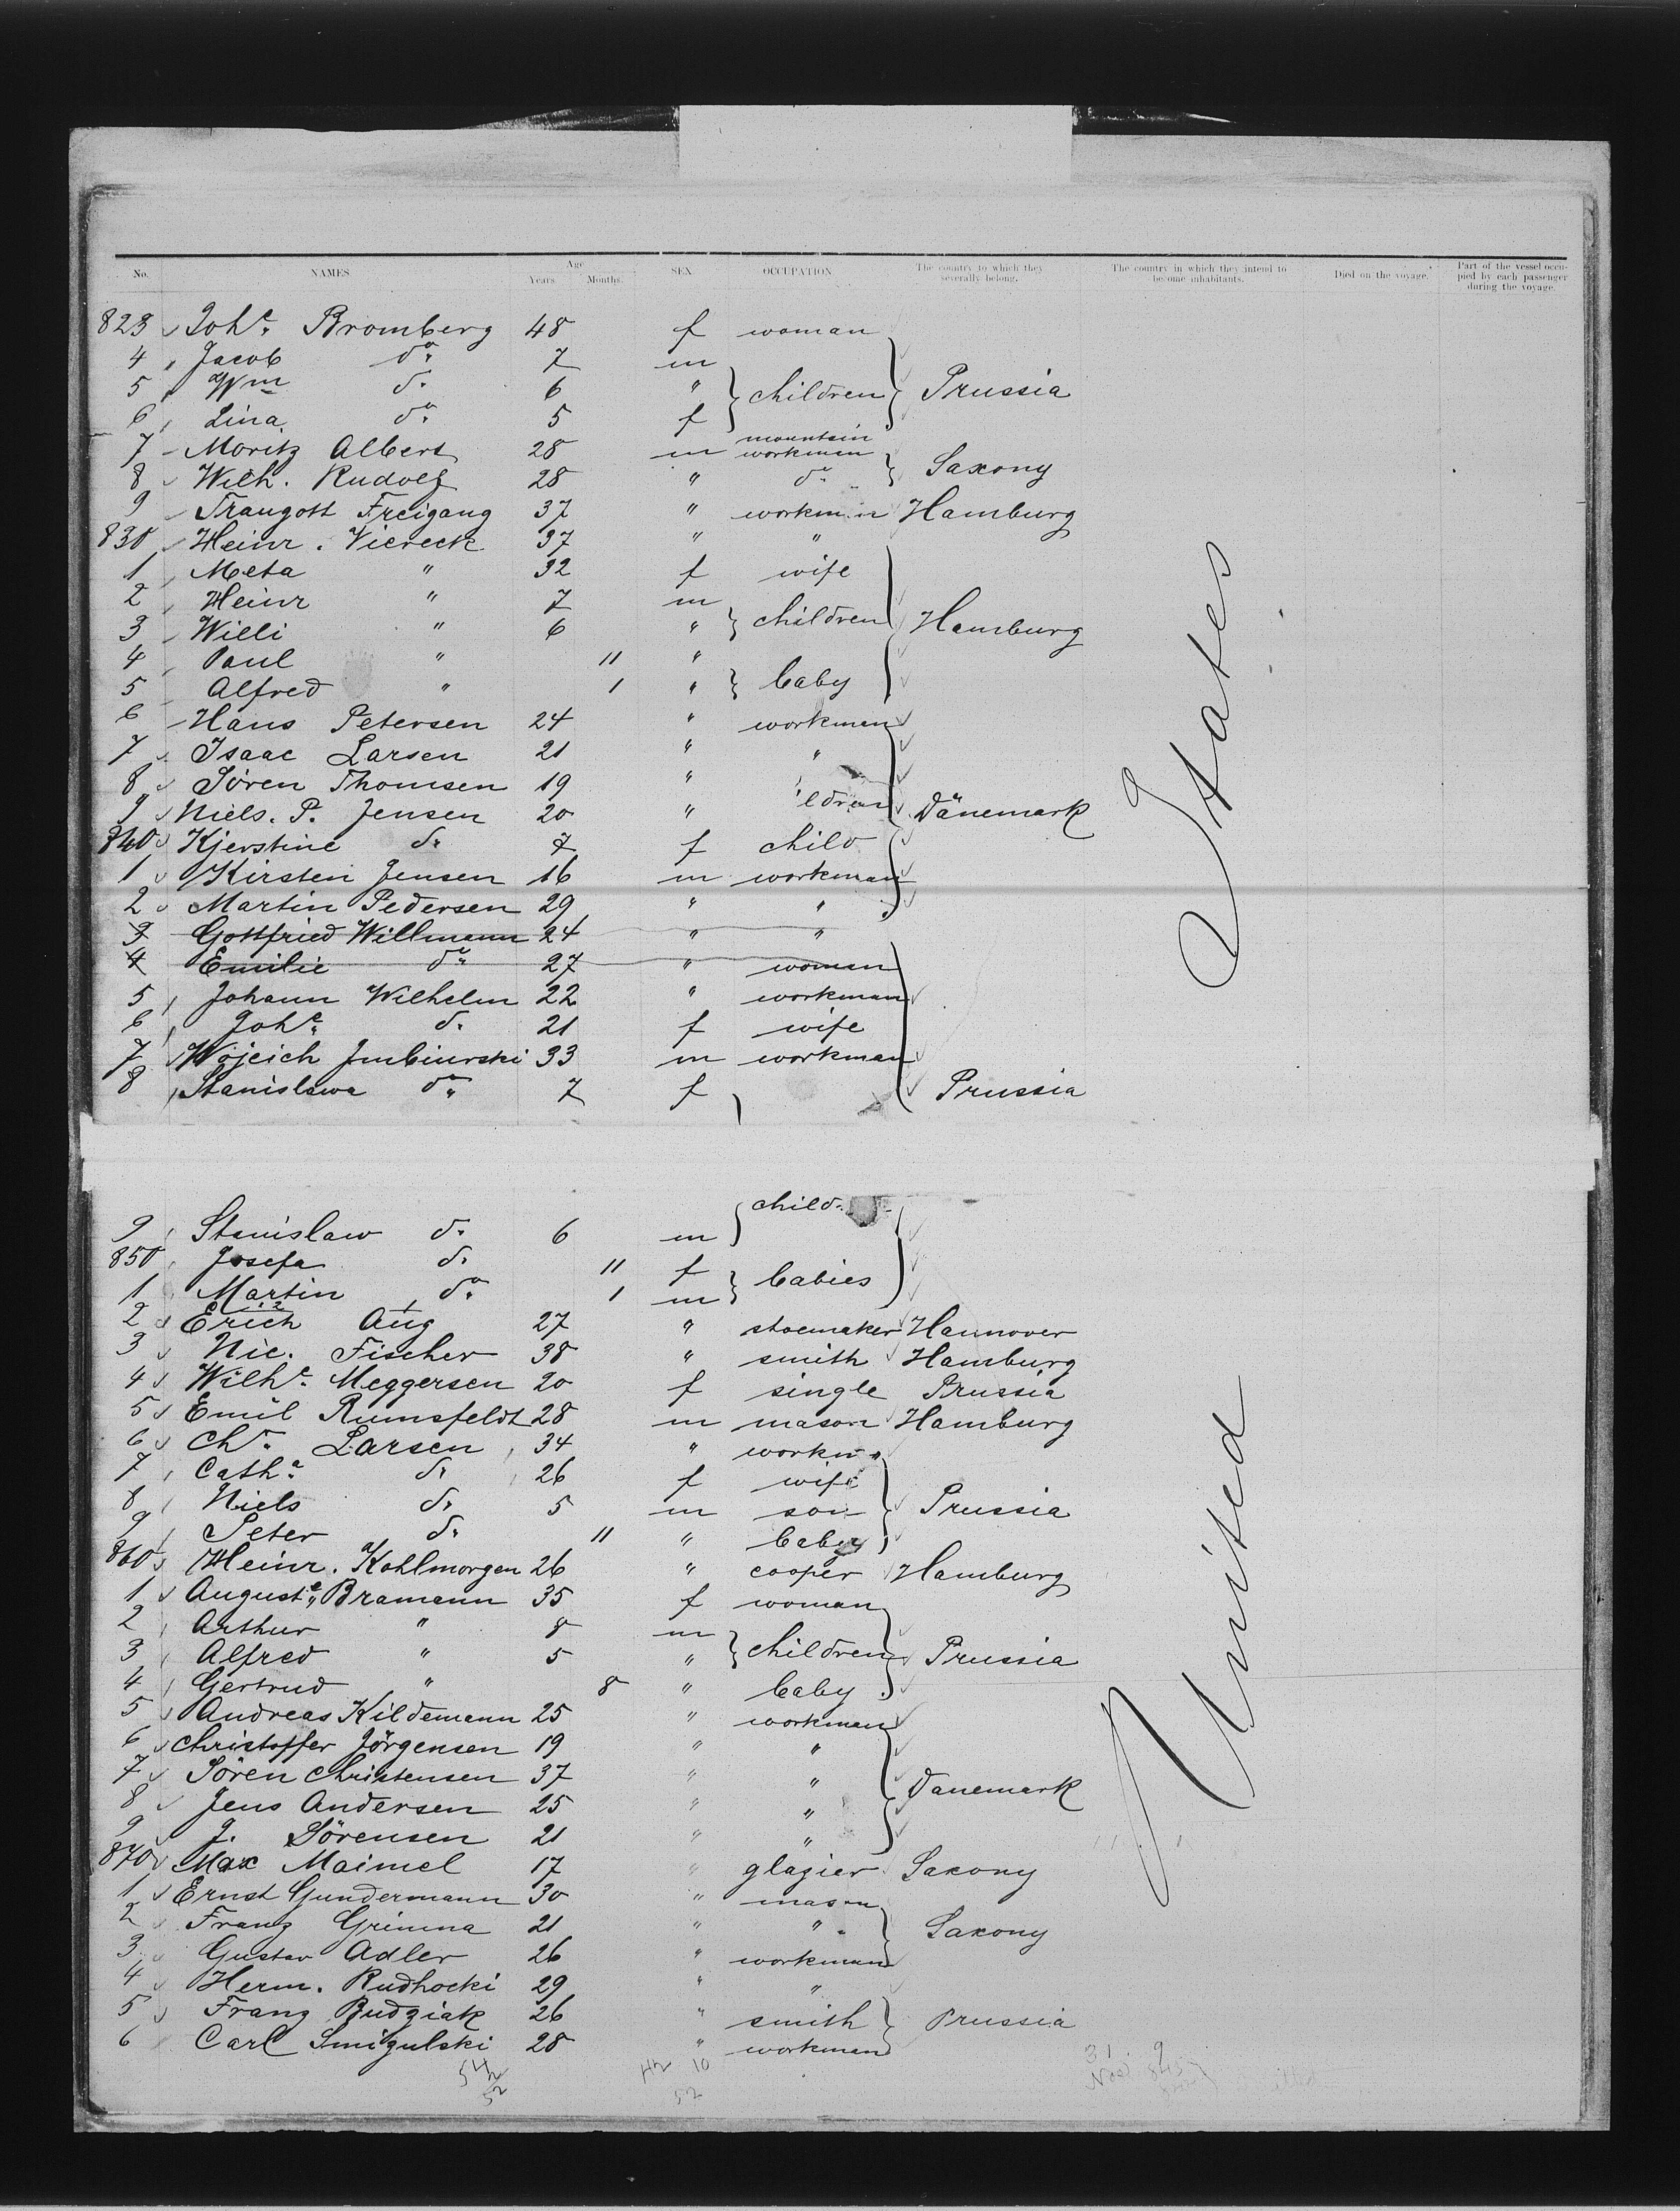 No. NAMES Age Years. Months. SEX OCCUPATION The country to which they severally belong. The country in which they intend to become inhabitants. Died on the voyage. Part of the vessel occupied by each passenger during the voyage.
823 Johe. Bromberg 48 f woman
4 Jacob do. 7 m
5 Wm d. 6 " children Prussia
6 Lina do. 5 f
7 Moritz Albert 28 m mountain workman
8 Wilh. Rudolf 28 " do. Saxony
9 Traugott Freigang 37 " workman Hamburg
830 Heinr. Viereck 37 " "
1 Meta " 32 f wife
2 Heinr " 7 m
3 Willi " 6 " children Hamburg
4 Paul " 11 "
5 Alfred " 1 " baby
6 Hans Petersen 24 " workman
7 Isaac Larsen 21 " "
8 Sören Thomsen 19 "
9 Niels. P. Jensen 20 " ldren Dänemark
840 Kjerstine d. 7 f child
1 Kirsten Jensen 16 m workman
2 Martin Pedersen 29 " "
3 Gottfried Willmann 24 " "
4 Emilie do. 27 " woman
5 Johann Wilhelm 22 " workman
6 Johe. d. 21 f wife
7 Wojeich 33 m workman
8 Stanislawa do. 7 f Prussia
States
child.
9 Stanislaw d. 6 m
850 Josefa d. 11 f babies
1 Martin do. 1 m
2 Erich Aug 27 " shoemaker Hannover
3 Nic. Fischer 38 " smith Hamburg
4 Wilhe. Meggersen 20 f single Prussia
5 Emil Rumsfeldt 28 m mason Hamburg
6 Chr. Larsen 34 " workm
7 Catha. d. 26 f wife
8 Niels d. 5 m son Prussia
9 Peter d. 11 " baby
860 Heinr. Kohlmorgen 26 " cooper Hamburg
1 Auguste. Bramann 35 f woman
2 Arthur " 8 m
3 Alfred " 5 " children Prussia
4 Gertrud " 8 " baby
5 Andreas Kildemann 25 " workman
6 Christoffer Jörgensen 19 " "
7 Sören Christensen 37 " " Danemark
8 Jens Andersen 25 " "
9 J. Sörensen 21 " "
870 Max Maimel 17 " glazier Saxony
1 Ernst Gundermann 30 " mason
2 Franz Grimma 21 " " Saxony
3 Gustav Adler 26 " workman
4 Herm. Rudhocki 29 " "
5 Franz Budziak 26 " smith Prussia
6 Carl Smigulski 28 " workman
United
52 10
52